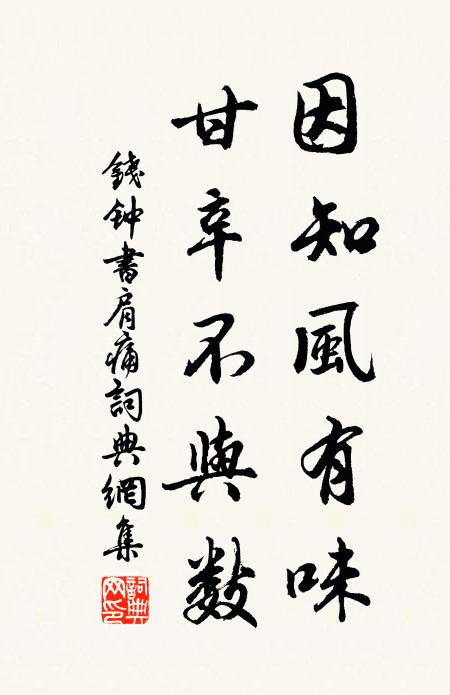 因知風有味
甘辛不與數
錢钟書肩痛詞典網集
詞典網印